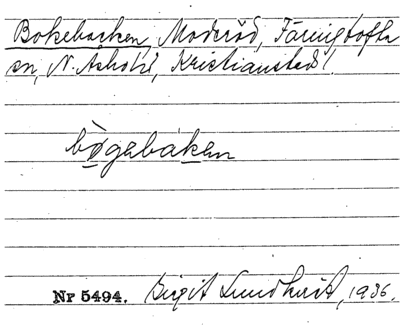 Bokebacken, Moderöd, Färingtofta
sn, N. Åsbo hd, Kristianstads l.
bøgebaken
Nr 5494. Birgit Lundkvist, 1936.